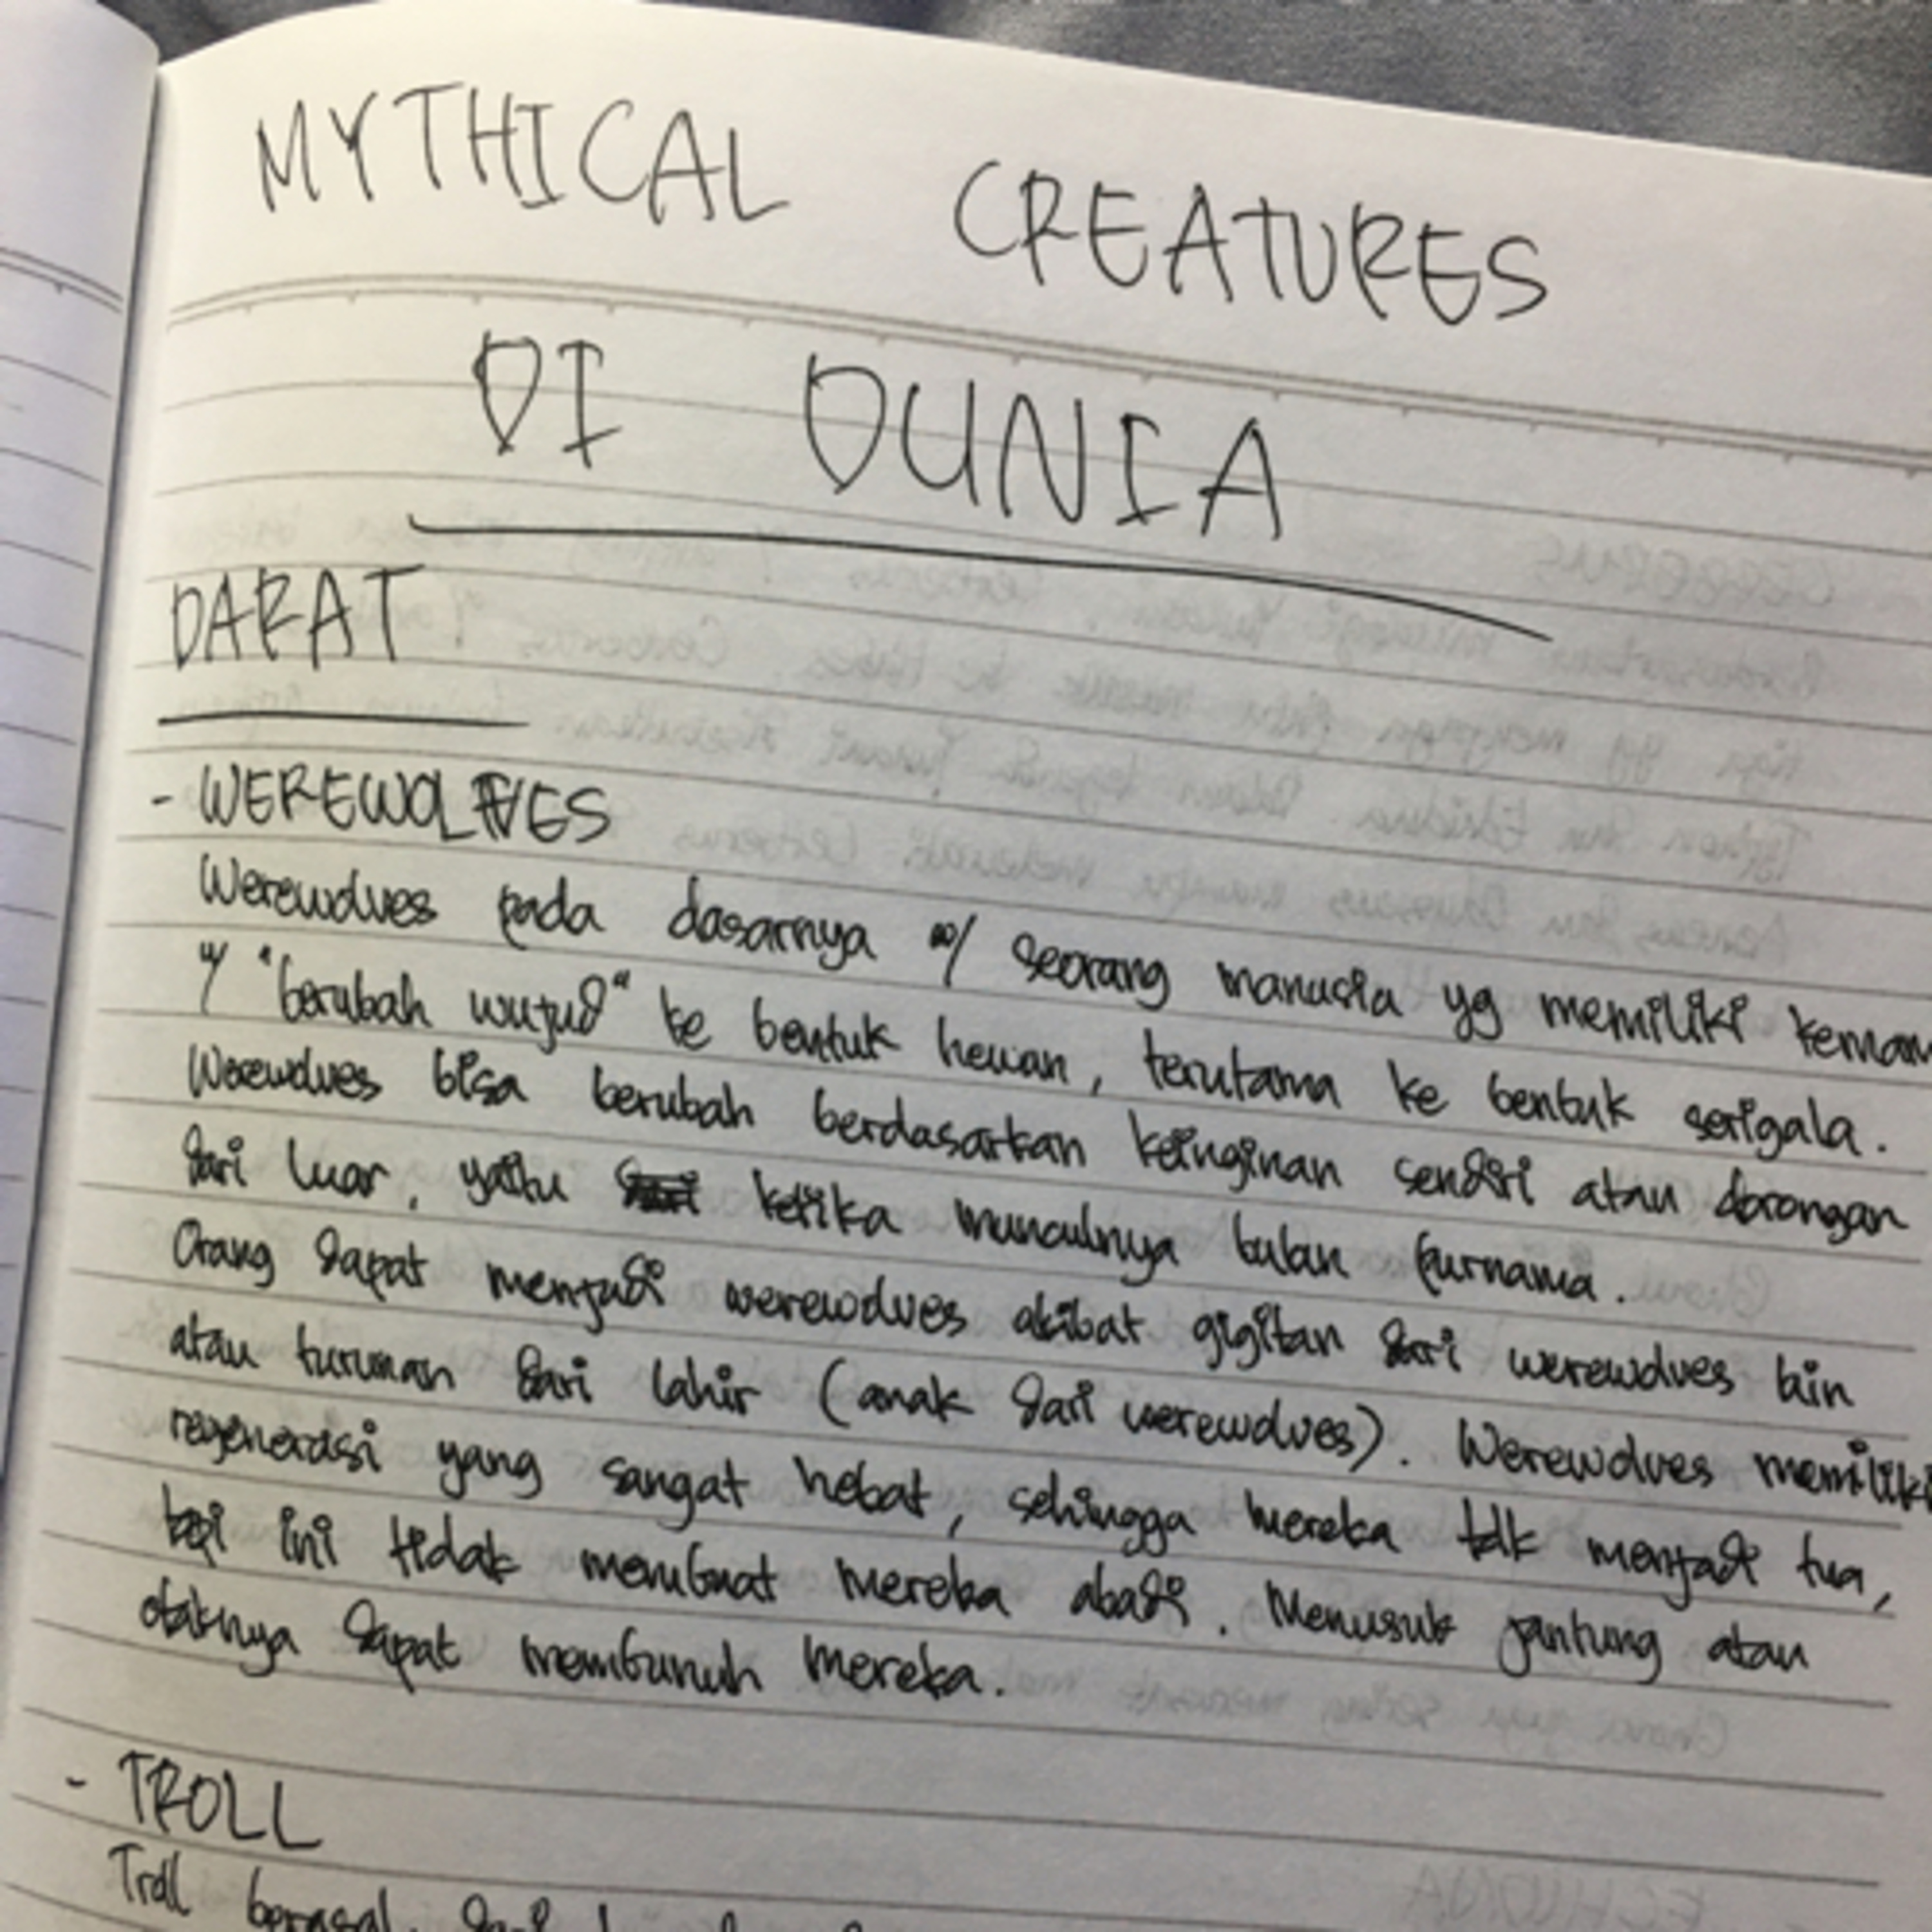 MYTHICAL CREATURES
DI DUNIA
DARAT
- WEREWOLVES
Werewolves pada dasarnya seorang manusia yg memiliki kemam
"berubah wujud" ke bentuk hewan, terutama ke bentuk serigala.
Werewolves bisa berubah berdasarkan keinginan sendiri atau dorongan
dari luar, yaitu ketika munculnya bulan purnama.
Orang dapat menjadi werewolves akibat gigitan dari werewolves lain
atau turunan dari lahir (anak dari werewolves). Werewolves memiliki
regenerasi yang sangat hebat, sehingga mereka tdk menjadi tua,
tapi ini tidak membuat mereka abadi. Menusuk jantung atau
otaknya dapat membunuh mereka.
- TROLL
Troll berasal dari